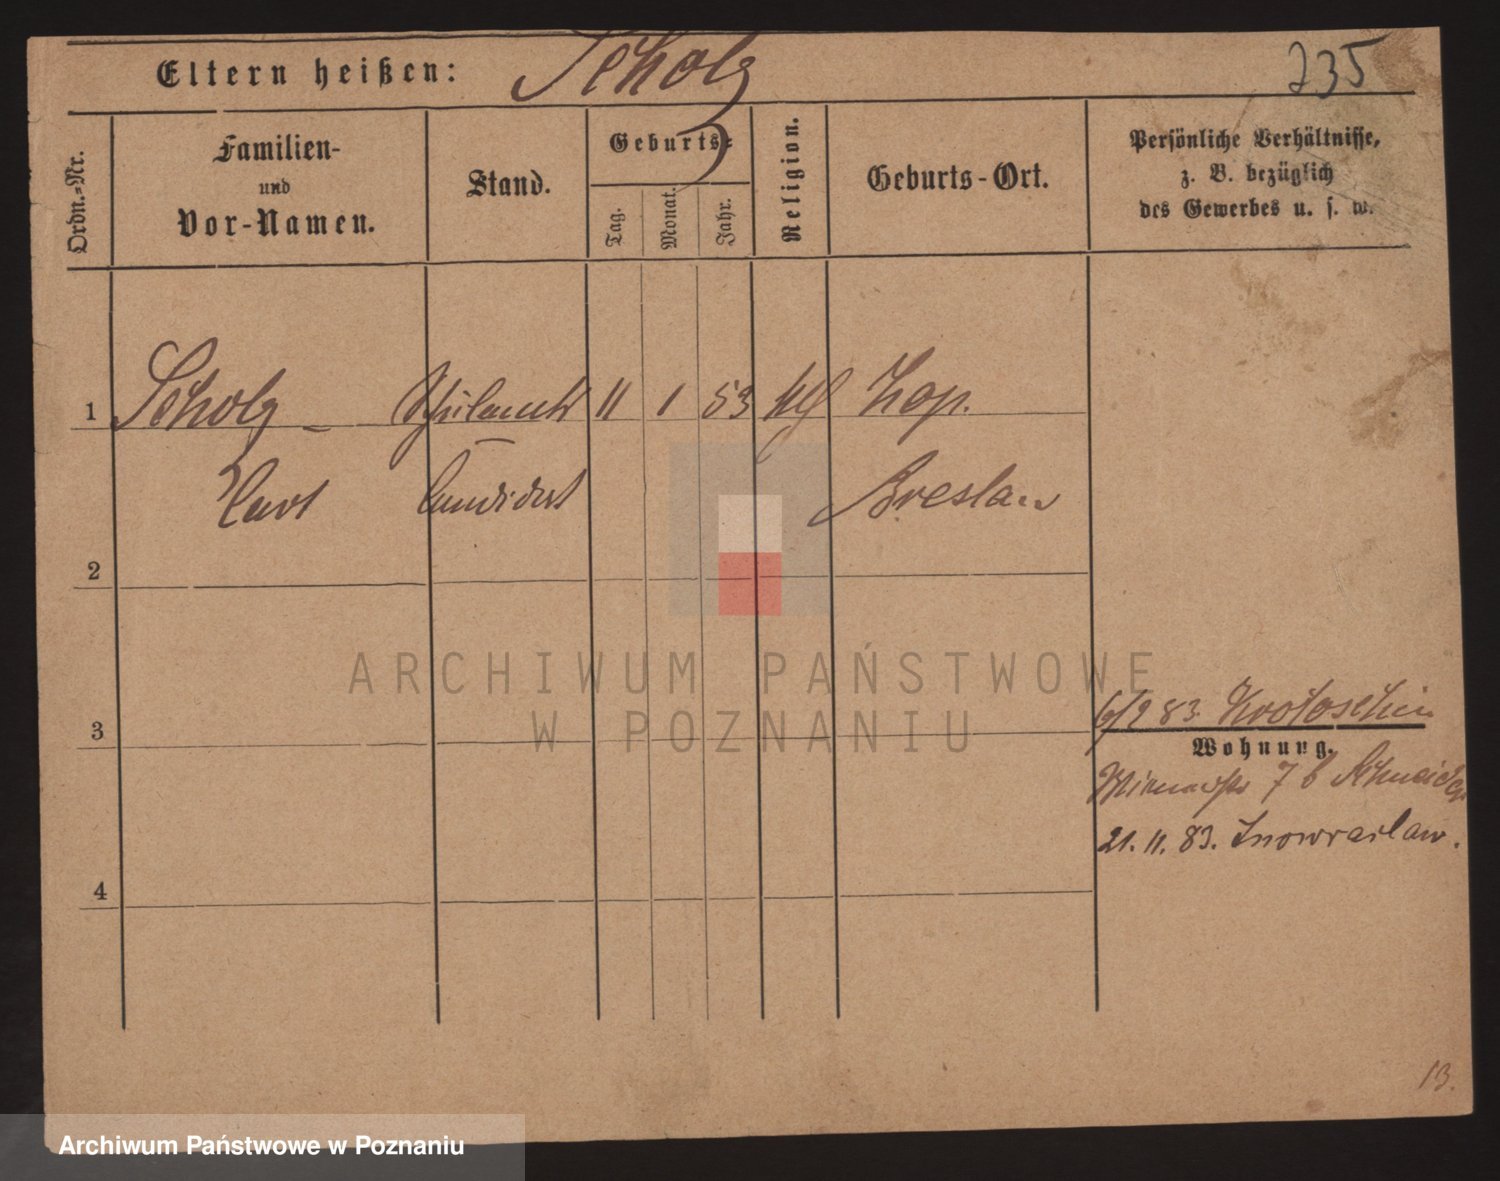 Eltern heißen: Scholz 235
Ordn.-Nr.
Familien-
und
Vor-Namen.
Stand.
Geburts-
Tag.
Monat.
Jahr.
Religion.
Geburts-Ort.
Persönliche Verhältnisse,
z. B. bezüglich
des Gewerbes u. s. w.
1 Scholz Schulamts 11 1 53
Candidat Breslau
2
ARCHIWUM PAŃSTWOWE
W POZNANIU
3
6/9 83. Krotoschin
Wohnung.
7 b Schneider
21. 11. 83. Inowraclaw.
4
13.
Archiwum Państwowe w Poznaniu